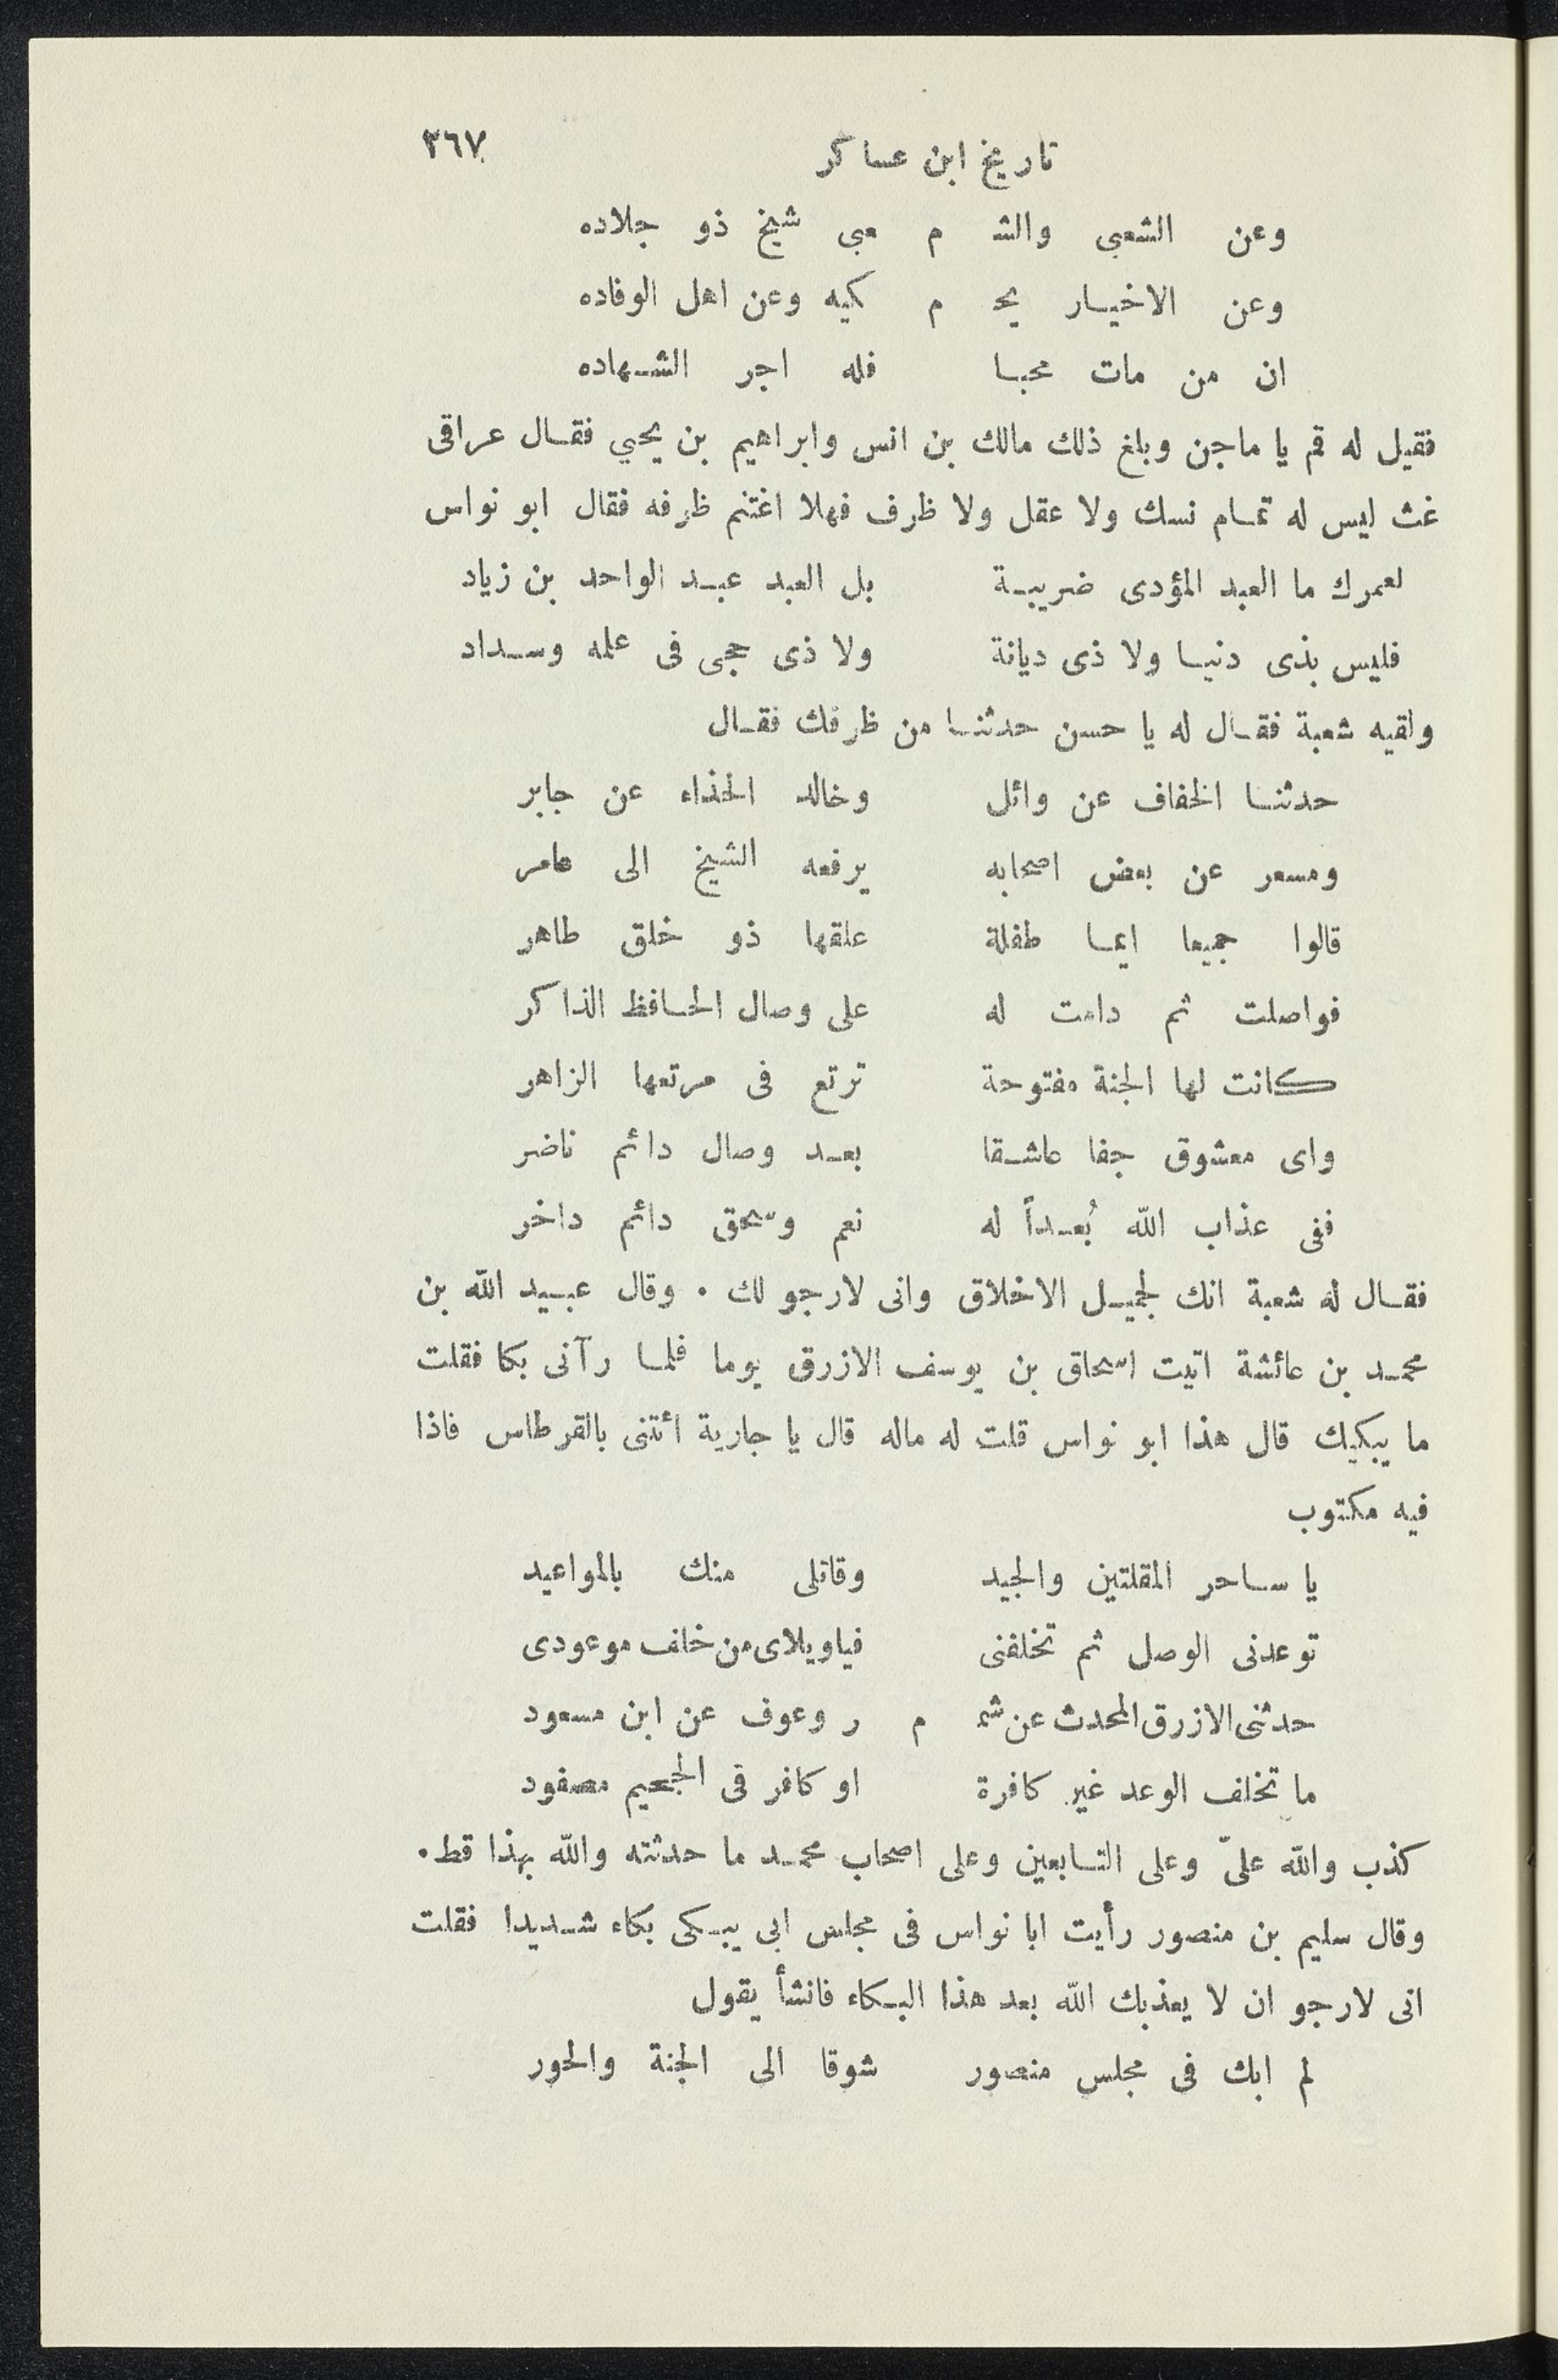 تاريخ ابن عساكر ٣٦٧
وعن الشعبى والشـ م ـعبى شيخ ذو جلاده
وعن الاخيار يحـ م ـكيه وعن اهل الوفاده
ان من مات محبا فله اجر الشهاده
فقيل له قم يا ماجن وبلغ ذلك مالك بن انس وابراهيم بن يحيي فقال عراقى
غث ليس له تمام نسك ولا عقل ولا ظرف فهلا اغتنم ظرفه فقال ابو نواس
لعمرك ما العبد المؤدى ضريبة بل العبد عبد الواحد بن زياد
فليس بذى دنيا ولا ذى ديانة ولا ذى حجى فى علمه وسداد
ولقيه شعبة فقال له يا حسن حدثنا من ظرفك فقال
حدثنا الخفاف عن وائل وخالد الحذاء عن جابر
ومسعر عن بعض اصحابه يرفعه الشيخ الى عامر
قالوا جميعا ايما طفلة علقها ذو خلق طاهر
فواصلت ثم دامت له على وصال الحافظ الذاكر
كانت لها الجنة مفتوحة ترتع فى مرتعها الزاهر
واى معشوق جفا عاشقا بعد وصال دائم ناضر
ففى عذاب الله بُعداً له نعم وسحق دائم داخر
فقال له شعبة انك لجميل الاخلاق وانى لارجو لك . وقال عبيد الله بن
محمد بن عائشة اتيت اسحاق بن يوسف الازرق يوما فلما رآنى بكا فقلت
ما يبكيك قال هذا ابو نواس قلت له ماله قال يا جارية ائتنى بالقرطاس فاذا
فيه مكتوب
يا ساحر المقلتين والجيد وقاتلى منك بالمواعيد
توعدنى الوصل ثم تخلفنى فياويلاى من خلف موعودى
حدثنى الازرق المحدث عن شمـ م ر وعوف عن ابن مسعود
ما تخلف الوعد غير كافرة او كافر فى الجحيم مصفود
كذب والله علىّ وعلى التابعين وعلى اصحاب محمد ما حدثته والله بهذا قط.
وقال سليم بن منصور رأيت ابا نواس فى مجلس ابى يبكى بكاء شديدا فقلت
انى لارجو ان لا يعذبك الله بعد هذا البكاء فانشأ يقول
لم ابك فى مجلس منصور شوقا الى الجنة والحور